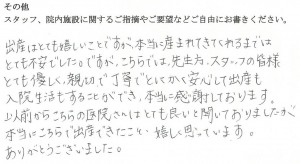 その他
スタッフ、院内施設に関するご指摘やご要望などご自由にお書きください。
出産はとても嬉しいことですが、本当に産まれてきてくれるまでは
とても不安でした。ですが、こちらでは、先生方、スタッフの皆様
とても優しく、親切で丁寧でとにかく安心して出産も
入院生活もすることができ、本当に感謝しております。
以前からこちらの医院さんはとても良いと聞いておりましたが
本当にこちらで出産できたこと、嬉しく思っています。
ありがとうございました。